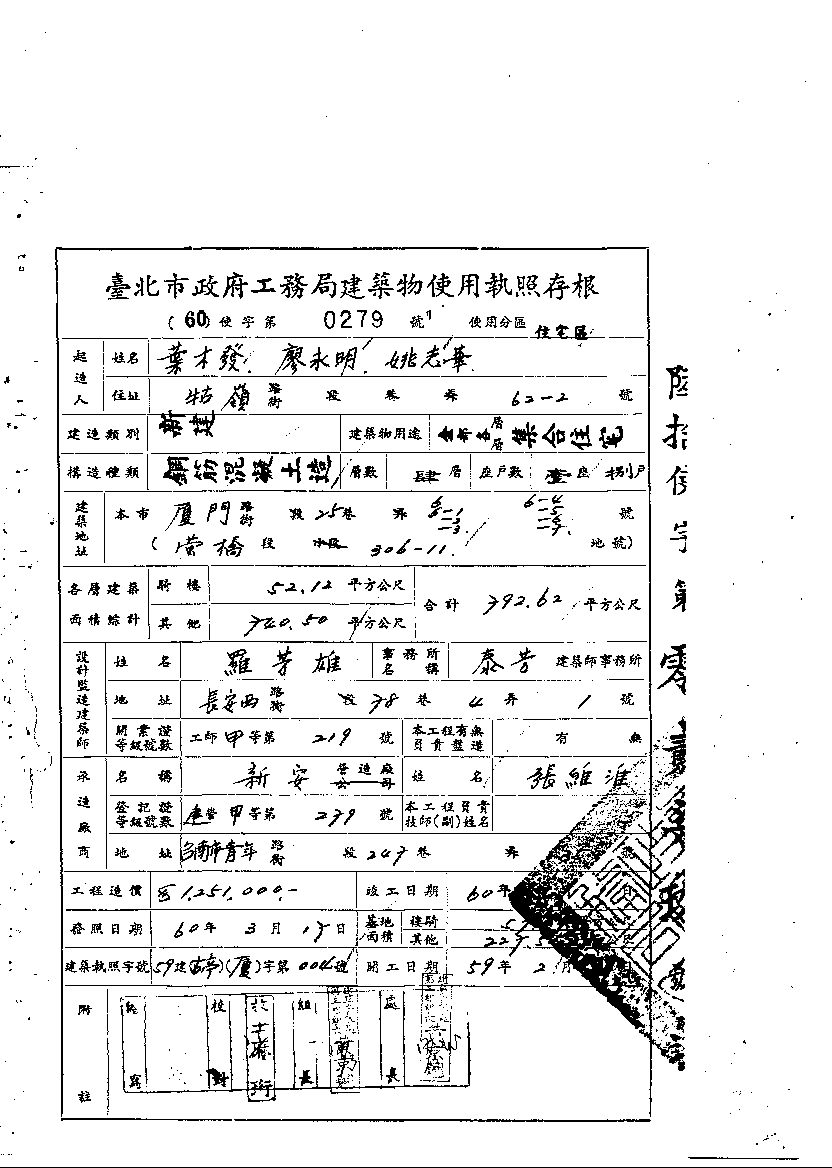 臺北市政府工務局建築物使用執照存根
(60)使字第 0279 號 使用分區 住宅區
起造人 姓名 葉木發 廖永明 姚光華
住址 牯嶺 路街 段 巷 弄 62-2 號
建造類別 新建 建築物用途 全部各層 集合住宅
構造種類 鋼筋混凝土造 層數 肆層 座戶數 壹座 捌戶
建築地址 本市 廈門 路街 段 25巷 弄 6 6-1 -2 -3 6-4 -5 -6 -7 號
(營橋段 小段 306-11 地號)
各層建築面積綜計 騎樓 52.12 平方公尺 合計 792.62 平方公尺
其他 740.50 平方公尺
設計監造建築師 姓名 羅芳雄 事務所名稱 泰芳 建築師事務所
地址 長安西 路街 段 78 巷 4 弄 1 號
開業證等級號數 工師 甲 等第 219 號 本工程有無負責監造 有 無
承造廠商 名稱 新安 營造廠公司 姓名 張維淮
登記證等級號數 營 甲 等第 239 號 本工程負責技師(副)姓名
地址 台南市青年 路街 段 247 巷 弄
工程造價 1,251,000.- 竣工日期 60年 月
發照日期 60年 3月 17日 基地面積 騎樓
其他
建築執照字號 59建()(廈)字第004號 開工日期 59年 2月
附註 繕寫 校對 組長 處長
陸拾使字第零